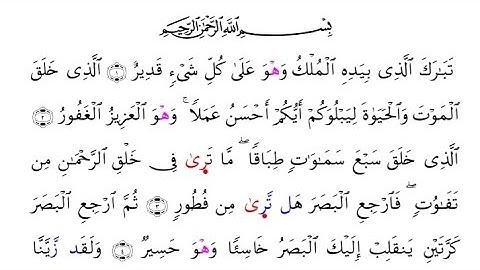 بِسْمِ اللَّهِ الرَّحْمَٰنِ الرَّحِيمِ
تَبَارَكَ الَّذِي بِيَدِهِ الْمُلْكُ وَهْوَ عَلَىٰ كُلِّ شَيْءٍ قَدِيرٌ ١ الَّذِي خَلَقَ
الْمَوْتَ وَالْحَيَوٰةَ لِيَبْلُوَكُمْ أَيُّكُمْ أَحْسَنُ عَمَلًا ۚ وَهْوَ الْعَزِيزُ الْغَفُورُ ٢
الَّذِي خَلَقَ سَبْعَ سَمَٰوَٰتٍ طِبَاقًا ۖ مَّا تَرِىٰ فِي خَلْقِ الرَّحْمَٰنِ مِن
تَفَٰوُتٍ ۖ فَارْجِعِ الْبَصَرَ هَل تَّرِىٰ مِن فُطُورٍ ٣ ثُمَّ ارْجِعِ الْبَصَرَ
كَرَّتَيْنِ يَنقَلِبْ إِلَيْكَ الْبَصَرُ خَاسِئًا وَهْوَ حَسِيرٌ ٤ وَلَقَد زَّيَّنَّا